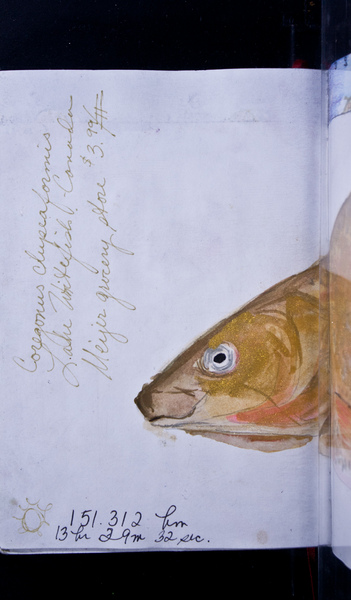 Coregonus clupeaformis
Lake Whitefish, Canada
Meijer grocery store $3.99 #
151.312 km
13 hr 29m 32 sec.